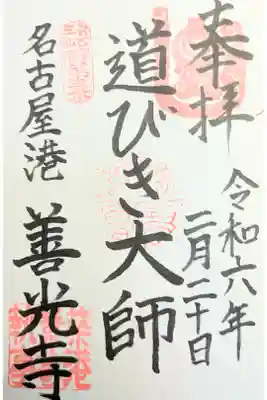 奉拝
令和六年
二月二十日
道びき大師
名古屋港
善光寺